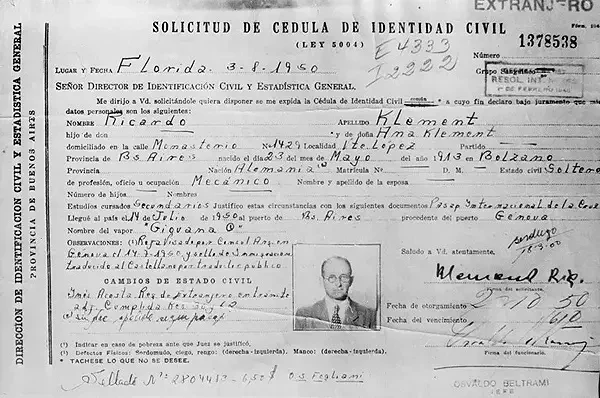 EXTRANJERO
SOLICITUD DE CEDULA DE IDENTIDAD CIVIL
(LEY 5004)
E4333
I2222
Núm. 154
1378538
Número
LUGAR Y FECHA Florida. 3-8-1950
Grupo Sanguíneo
RESOL. INT.
1º DE FEBRERO 1940
SEÑOR DIRECTOR DE IDENTIFICACIÓN CIVIL Y ESTADÍSTICA GENERAL.
Me dirijo a Vd. solicitándole quiera disponer se me expida la Cédula de Identidad Civil común * a cuyo fin declaro bajo juramento que mis
datos personales son los siguientes:
NOMBRE Ricardo APELLIDO Klement
hijo de don y de doña Ana Klement
domiciliado en la calle Monasterio Nº 1429 Localidad Vte. López Partido
Provincia de Bs. Aires nacido el día 23 del mes de Mayo del año 1913 en Bolzano
Provincia Nación Alemania Matrícula Nº D. M. Estado Civil Soltero
de profesión, oficio u ocupación Mecánico Nombre y apellido de la esposa
Número de hijos Nombres
Estudios cursados Secundarios Justifico estas circunstancias con los siguientes documentos Pasap. Internacional de la Cruz
Llegué al país el 14 de Julio de 1950 al puerto de Bs. Aires procedente del puerto Genova
Nombre del vapor "Giovana C"
OBSERVACIONES: (1) Roja Visado por Consul Arg. en
Genova el 14-7-1950 y sello de Inmigraciones
traducido al Castellano por traductor público
Saludo a Vd. atentamente.
CAMBIOS DE ESTADO CIVIL
Firma del solicitante.
Fecha de otorgamiento
Fecha del vencimiento
Firma del funcionario.
(¹) Indicar en caso de pobreza ante que Juez se justificó.
(²) Defectos Físicos: Sordomudo, ciego, rengo: (derecha-izquierda). Manco: (derecha-izquierda).
* TACHESE LO QUE NO SE DESEE.
Sellado Nº 2804413-6,50$
OSVALDO BELTRAMI
JEFE
DIRECCION DE IDENTIFICACIÓN CIVIL Y ESTADISTICA GENERAL
PROVINCIA DE BUENOS AIRES